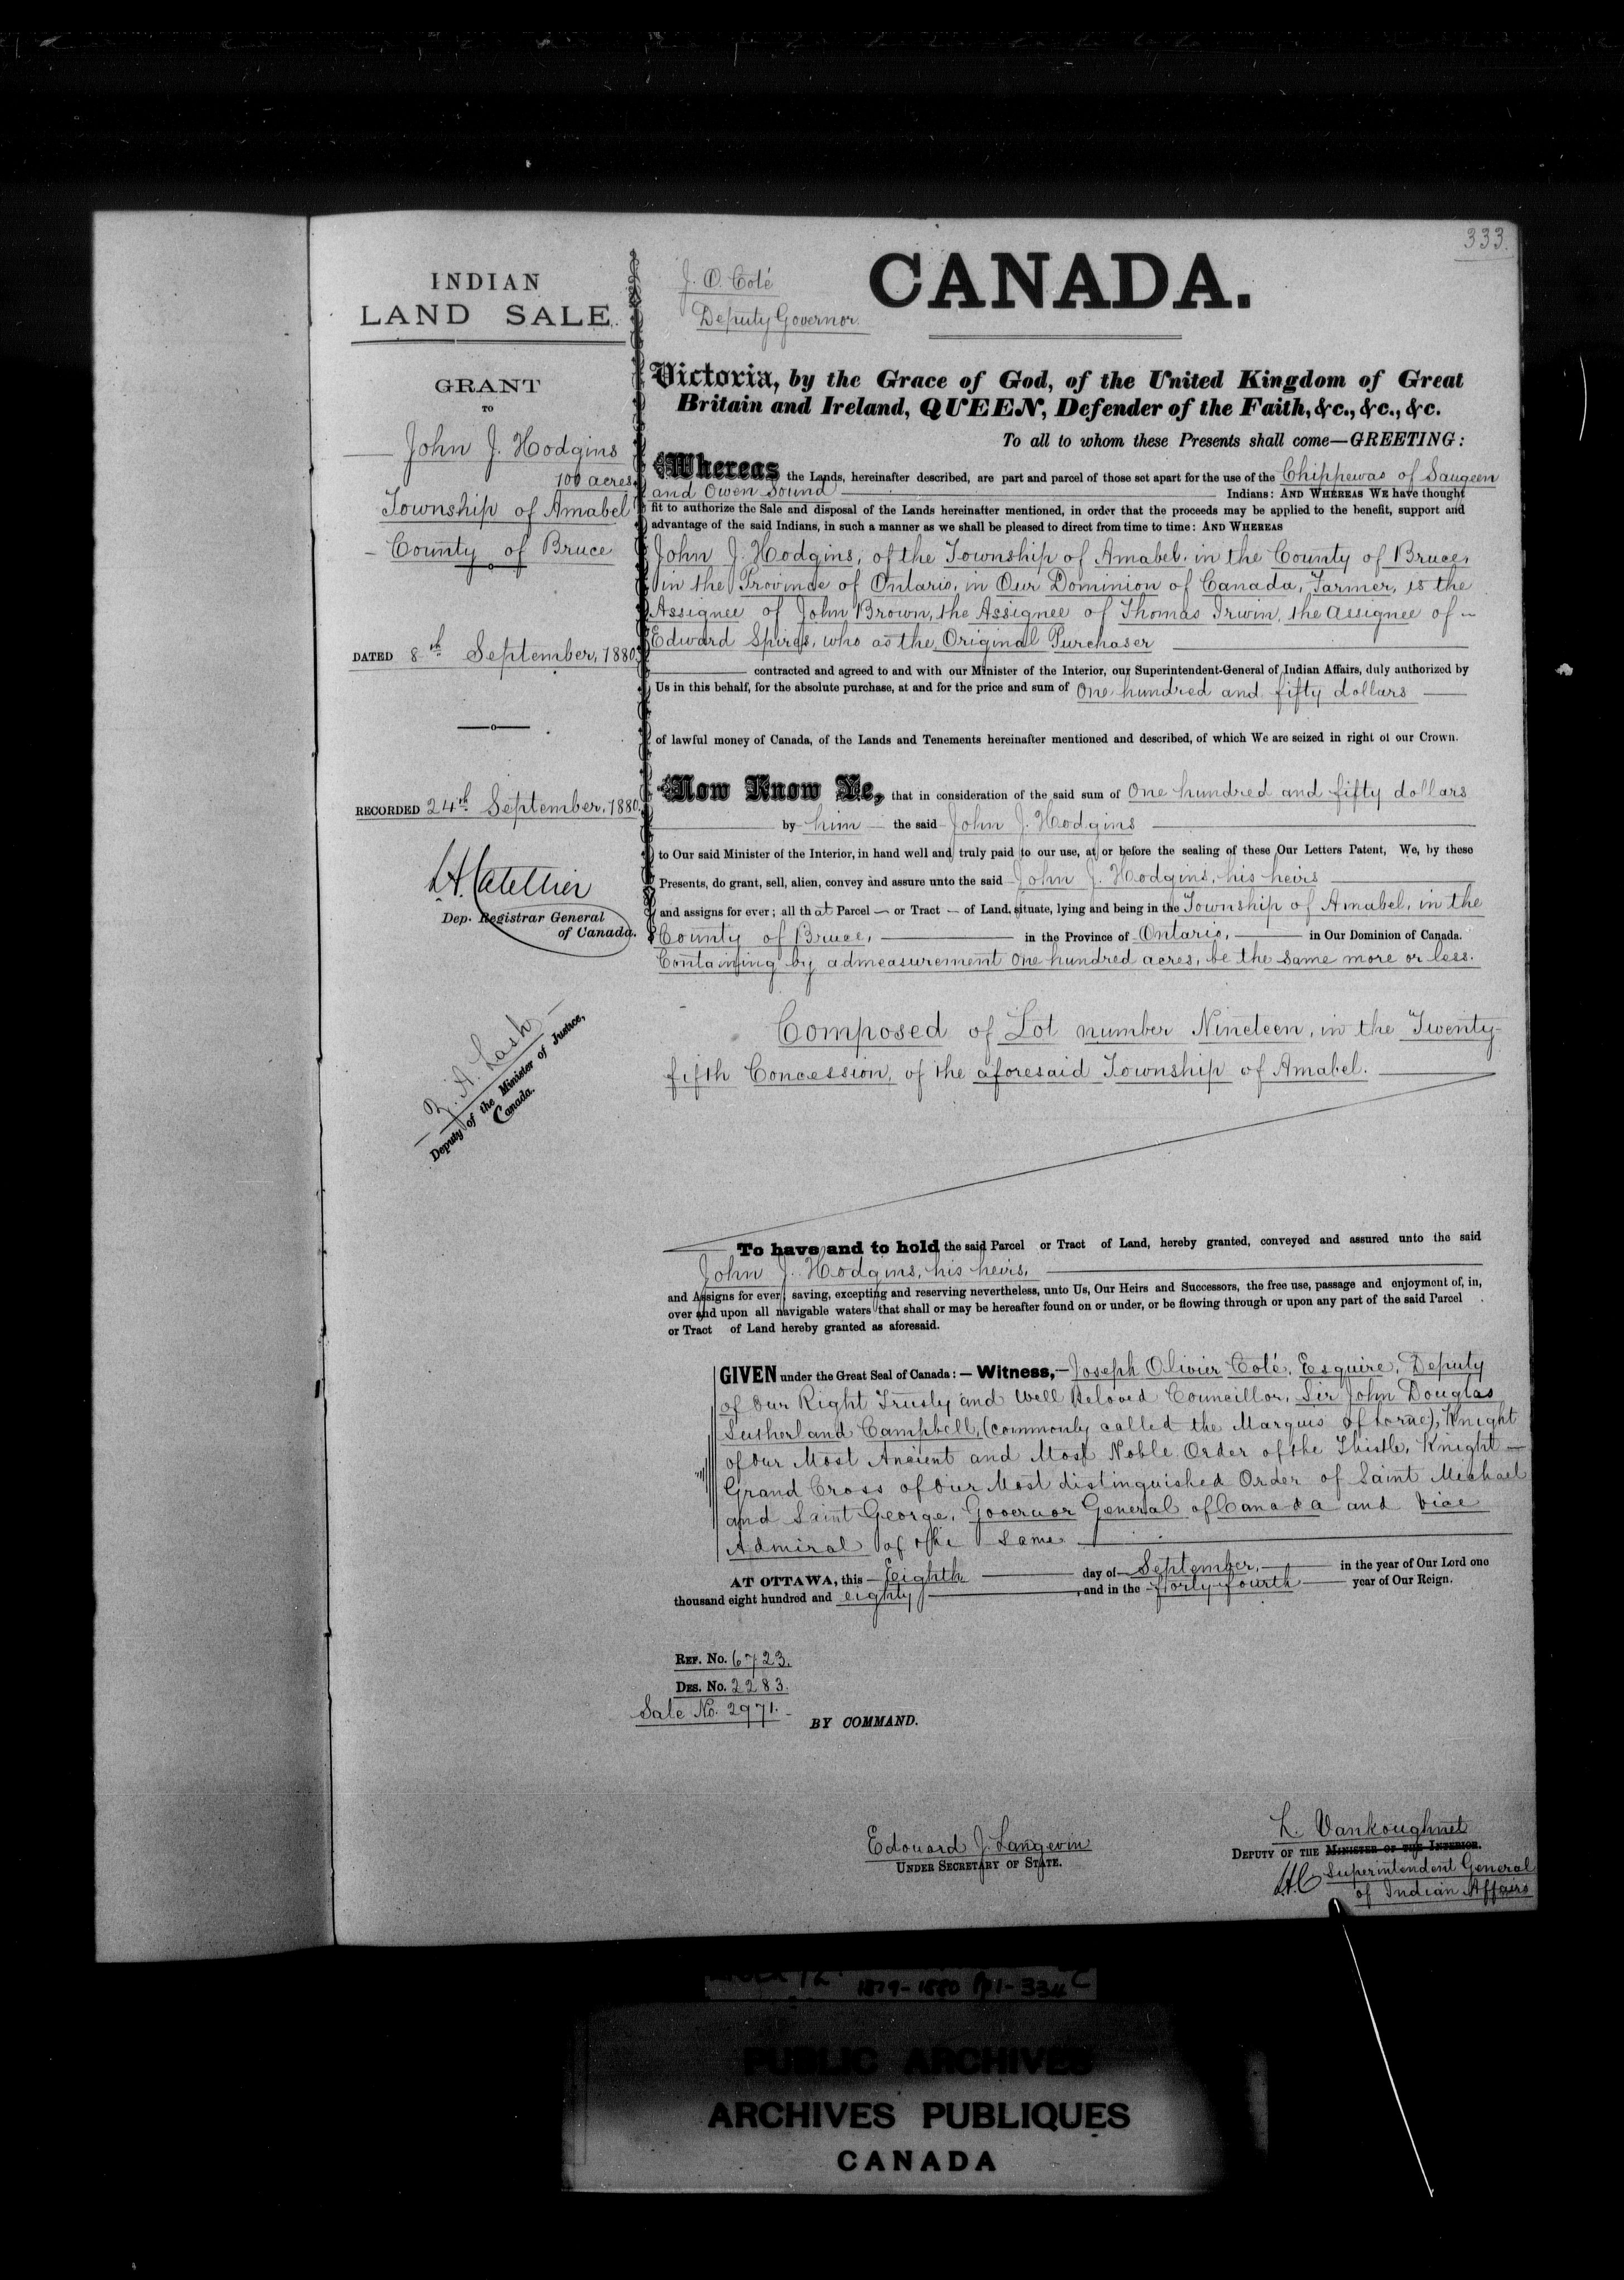 333.
INDIAN
LAND SALE.
GRANT
TO
John J. Hodgins
100 acres
Township of Amabel
County of Bruce
DATED 8th September, 1880
RECORDED 24th September, 1880.
L.A. Catellier
Dep. Registrar General
of Canada.
Z. A. Lash
Deputy of the Minister of Justice,
Canada.
J. O. Coté
Deputy Governor
CANADA.
Victoria, by the Grace of God, of the United Kingdom of Great
Britain and Ireland, QUEEN, Defender of the Faith, &c., &c., &c.
To all to whom these Presents shall come—GREETING:
Whereas the Lands, hereinafter described, are part and parcel of those set apart for the use of the Chippewas of Saugeen
and Owen Sound Indians: AND WHEREAS WE have thought
fit to authorize the Sale and disposal of the Lands hereinafter mentioned, in order that the proceeds may be applied to the benefit, support and
advantage of the said Indians, in such a manner as we shall be pleased to direct from time to time: AND WHEREAS
John J. Hodgins, of the Township of Amabel, in the County of Bruce,
in the Province of Ontario, in Our Dominion of Canada, Farmer, is the
Assignee of John Brown, the Assignee of Thomas Irwin, the assignee of
Edward Spires, who as the Original Purchaser
contracted and agreed to and with our Minister of the Interior, our Superintendent-General of Indian Affairs, duly authorized by
Us in this behalf, for the absolute purchase, at and for the price and sum of One hundred and fifty dollars
of lawful money of Canada, of the Lands and Tenements hereinafter mentioned and described, of which We are seized in right of our Crown.
Now Know Ye, that in consideration of the said sum of One hundred and fifty dollars
by him the said John J. Hodgins
to Our said Minister of the Interior, in hand well and truly paid to our use, at or before the sealing of these Our Letters Patent, We, by these
Presents, do grant, sell, alien, convey and assure unto the said John J. Hodgins, his heirs
and assigns for ever; all that Parcel — or Tract — of Land, situate, lying and being in the Township of Amabel, in the
County of Bruce, in the Province of Ontario, in Our Dominion of Canada.
Containing by admeasurement One hundred acres, be the same more or less.
Composed of Lot number Nineteen, in the Twenty-
fifth Concession, of the aforesaid Township of Amabel.
To have and to hold the said Parcel or Tract of Land, hereby granted, conveyed and assured unto the said
John J. Hodgins, his heirs,
and Assigns for ever; saving, excepting and reserving nevertheless, unto Us, Our Heirs and Successors, the free use, passage and enjoyment of, in,
over and upon all navigable waters that shall or may be hereafter found on or under, or be flowing through or upon any part of the said Parcel
or Tract of Land hereby granted as aforesaid.
GIVEN under the Great Seal of Canada:—Witness,—Joseph Olivier Coté, Esquire, Deputy
of Our Right Trusty and Well Beloved Councillor, Sir John Douglas
Sutherland Campbell, (commonly called the Marquis of Lorne), Knight
of Our Most Ancient and Most Noble Order of the Thistle, Knight
Grand Cross of Our Most distinguished Order of Saint Michael
and Saint George, Governor General of Canada and Vice
Admiral of the same
AT OTTAWA, this Eighth day of September, in the year of Our Lord one
thousand eight hundred and eighty, and in the forty-fourth year of Our Reign.
REF. No. 6723.
DES. No. 2283.
Sale No. 2971.
BY COMMAND.
Edouard J. Langevin
UNDER SECRETARY OF STATE.
L. Vankoughnet
DEPUTY OF THE MINISTER OF THE INTERIOR.
LAC Superintendent General
of Indian Affairs
1879-1880 pp 1-334
PUBLIC ARCHIVES
ARCHIVES PUBLIQUES
CANADA